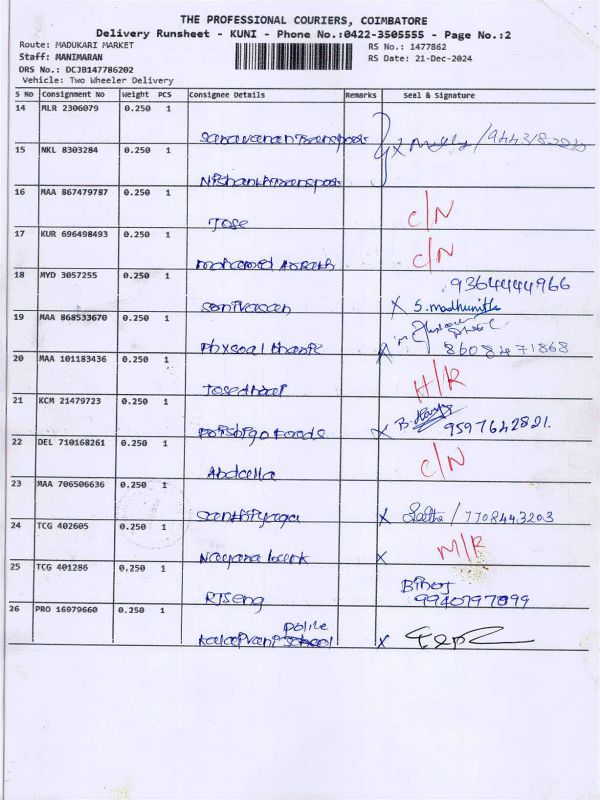 THE PROFESSIONAL COURIERS, COIMBATORE
Delivery Runsheet - KUNI - Phone No.:0422-3505555 - Page No.:2
Route: MADUKARI MARKET RS No.: 1477862
Staff: MANIMARAN RS Date: 21-Dec-2024
DRS No.: DCJB147786202
Vehicle: Two Wheeler Delivery
S No Consignment No Weight PCS Consignee Details Remarks Seal & Signature
14 MLR 2306079 0.250 1
Saravanan Transport
15 NKL 8303284 0.250 1
Nishanth Transport
16 MAA 867479787 0.250 1
Jose C/N
17 KUR 696498493 0.250 1
C/N
18 MYD 3057255 0.250 1 9364444966
Sonivasan X S. madhumitha
19 MAA 868533670 0.250 1
8608471868
20 MAA 101183436 0.250 1
H/R
21 KCM 21479723 0.250 1
Foods X B. 9597642821.
22 DEL 710168261 0.250 1
Abdulla C/N
23 MAA 706506636 0.250 1
X Latha / 7708443203
24 TCG 402605 0.250 1
X M/R
25 TCG 401286 0.250 1 Binoj
RJSeng 9940797099
26 PRO 16979660 0.250 1
Police
X